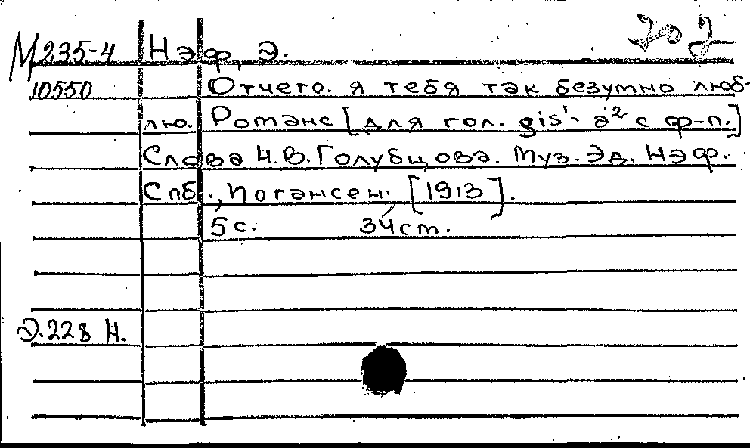 М 235-4 Нэф, Э.
10550 Отчего я тебя так безумно люб-
лю. Романс [для гол. gis¹- a² с ф-п.]
Слова Н.В. Голубцова. Муз. Эд. Нэф.
Спб., Иогансен. [1913].
5 с. 34 ст.
Э.228 Н.